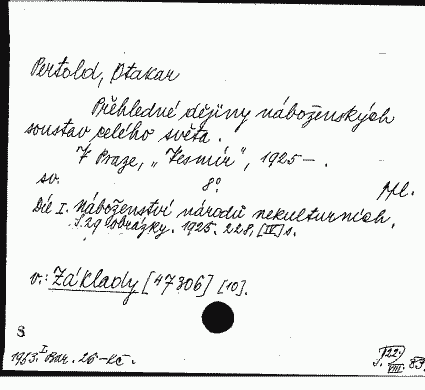 Pertold, Otakar
Přehledné dějiny náboženských
soustav celého světa.
V Praze, "Vesmír", 1925 - .
sv. 8°.
Díl I. Náboženství národů nekulturních.
S 29 obrázky. 1925. 228, [IV] s.
v.: Základy [47306] [10].
S
1963. I Bar. 25 - Kč.